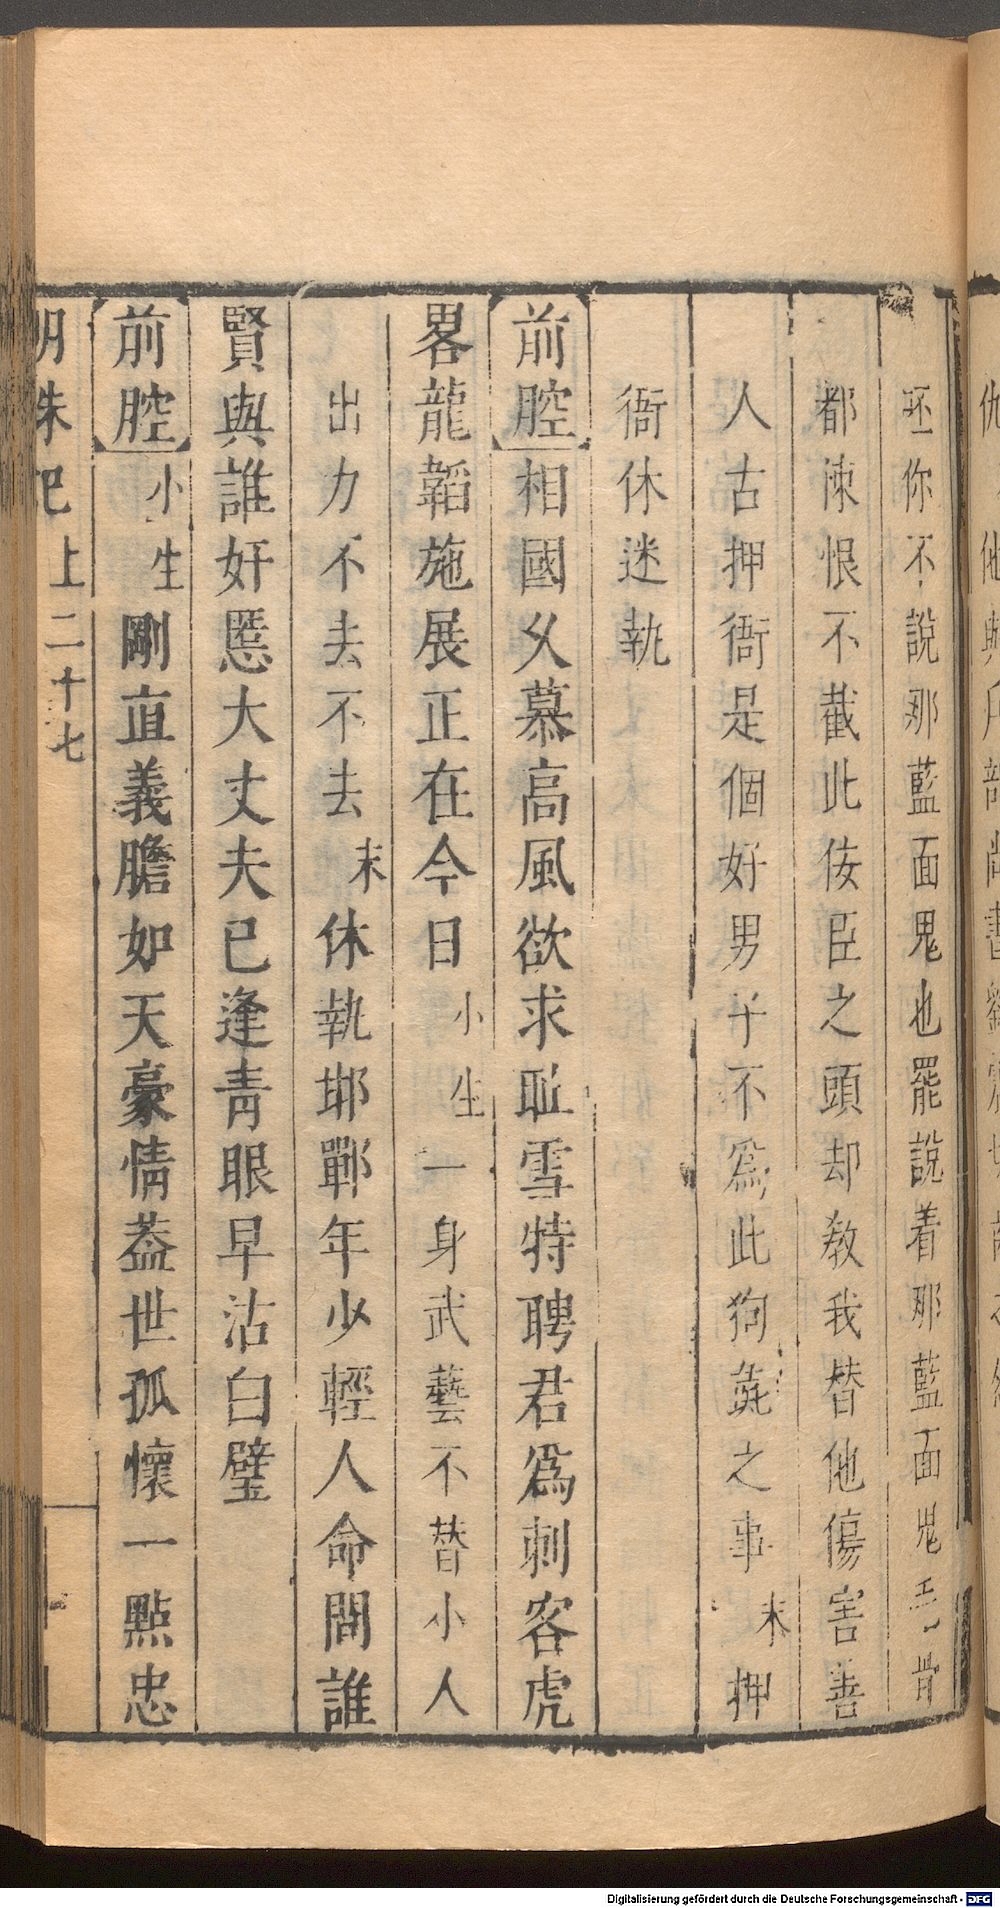 丕你不說那藍面鬼也罷說着那藍面鬼毛骨
都涑恨不截此侫臣之頭却教我替他傷害善
人古押衙是個好男子不爲此狗彘之事末押
衙休迷執
前腔相國父慕高風欲求耻雪特聘君爲刺客虎
畧龍韜施展正在今日小生一身武藝不替小人
出力不去不去末休執邯鄲年少輕人命問誰
賢與誰奸慝大丈夫已逢靑眼早沾白璧
前腔小生剛直義膽如天豪情葢世孤懷一點忠
明珠記上二十七
Digitalisierung gefördert durch die Deutsche Forschungsgemeinschaft - DFG